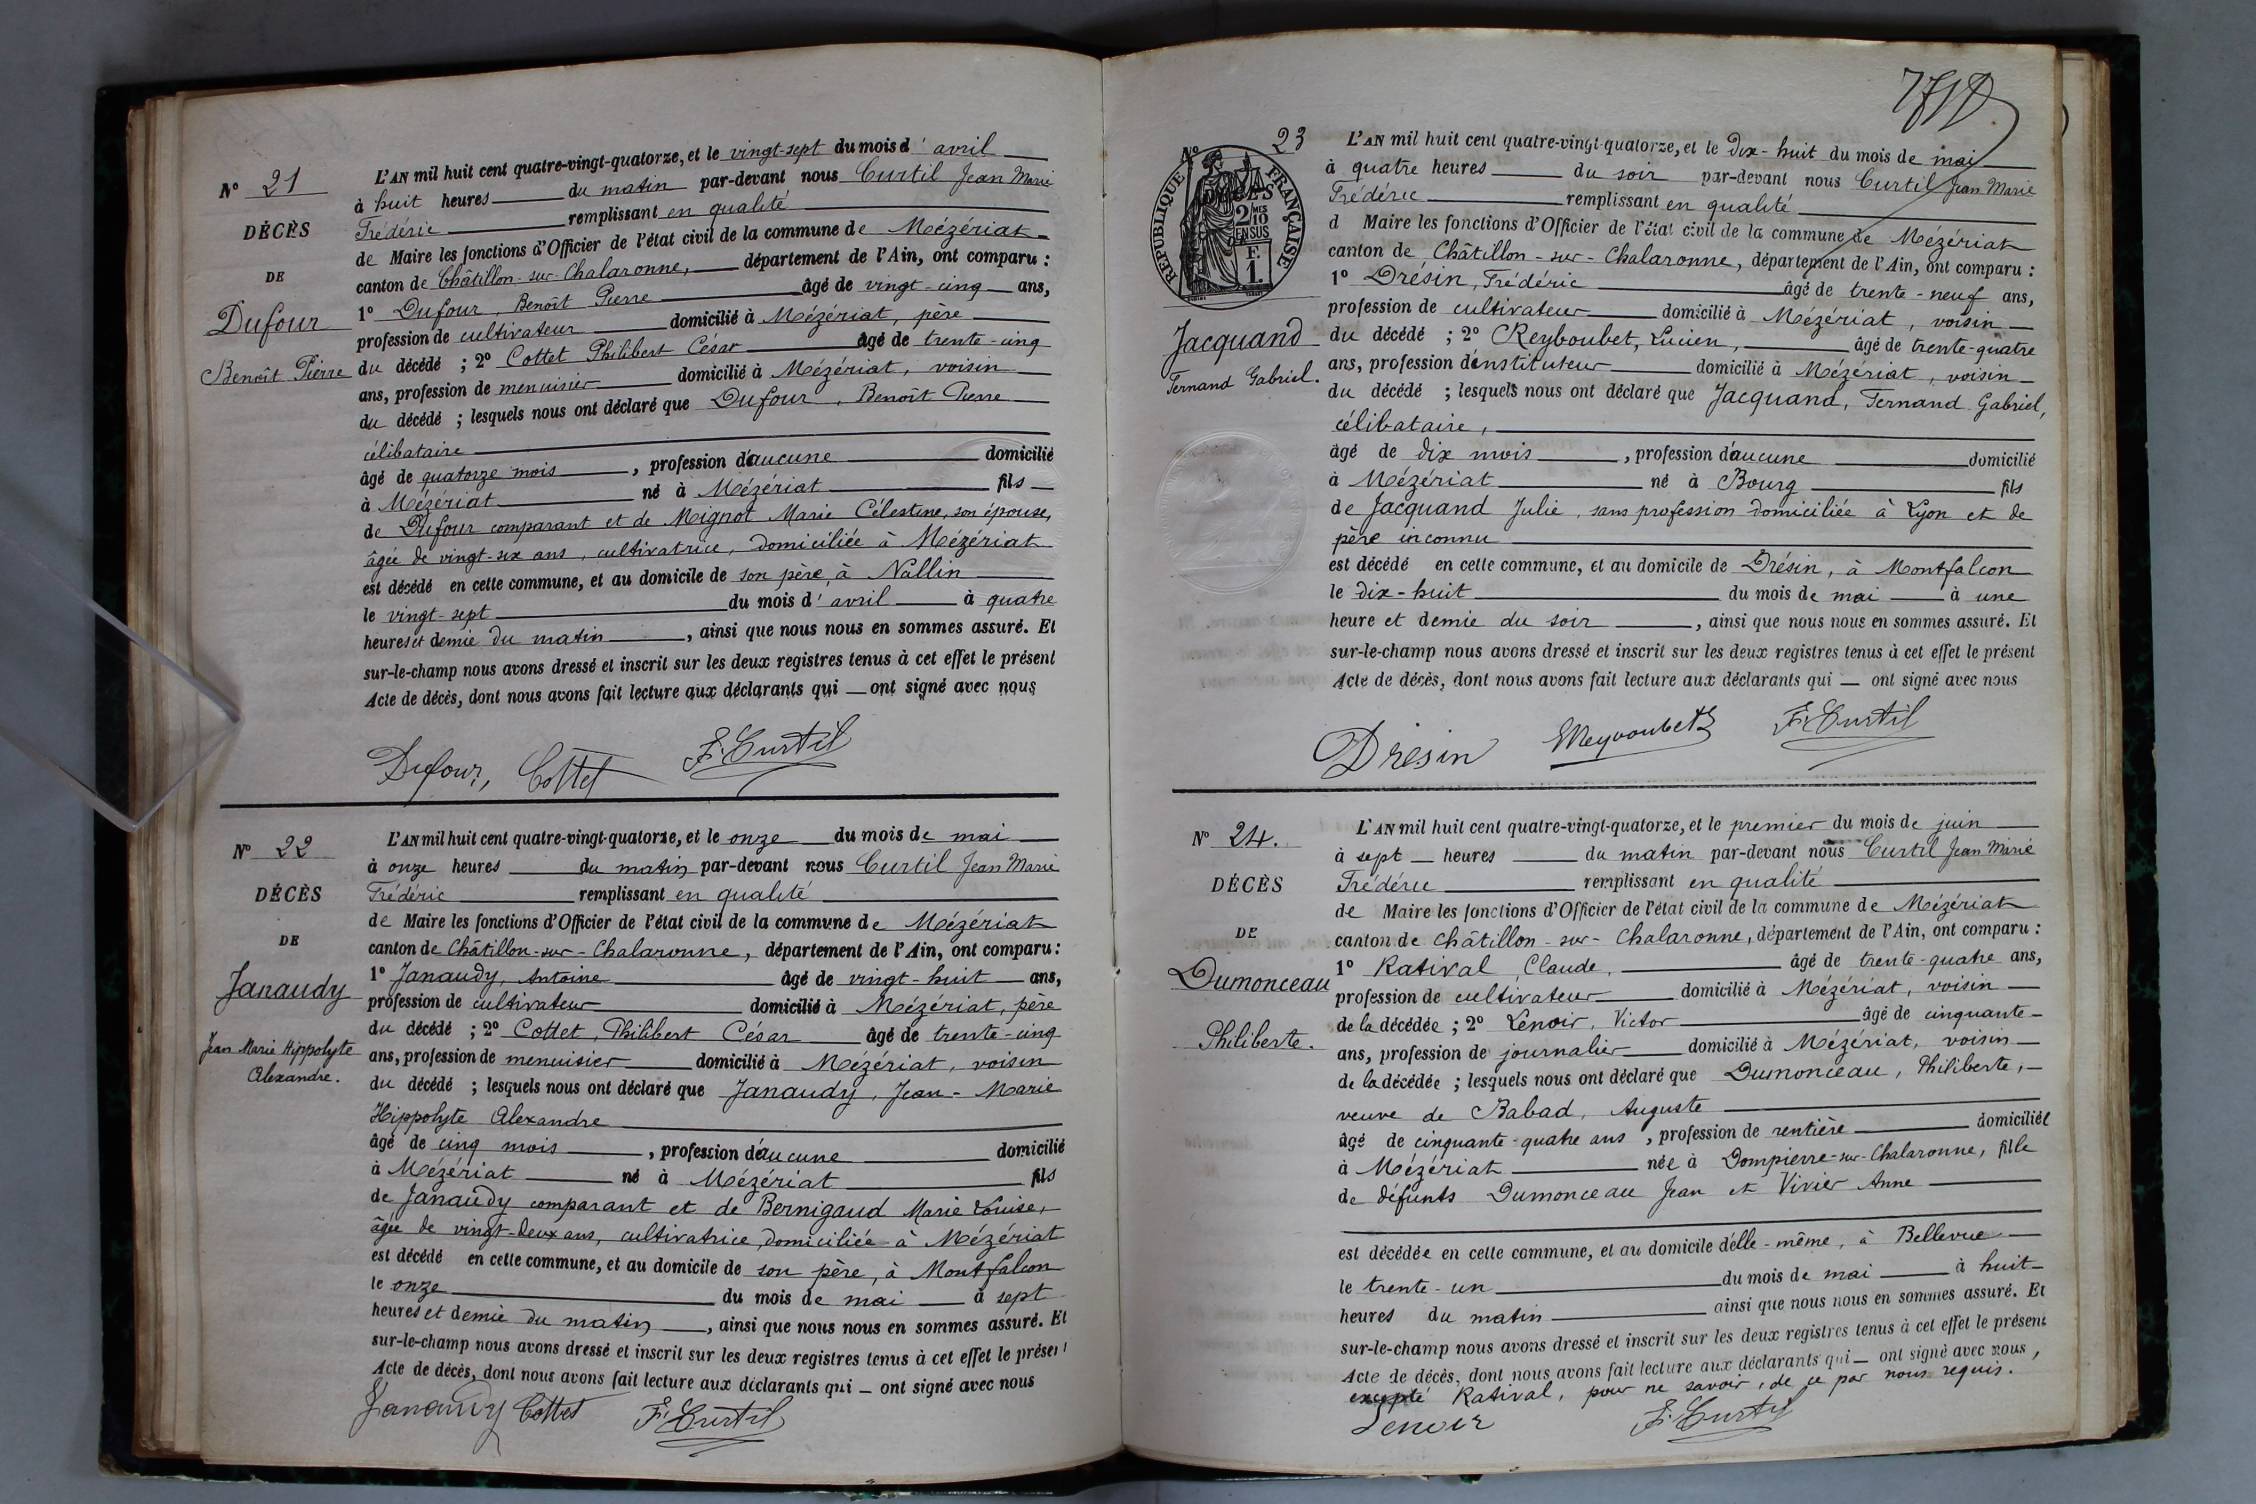 N° 21
DÉCÈS
DE
Dufour
Benoît Pierre
L'AN mil huit cent quatre-vingt-quatorze, et le vingt-sept du mois d'avril
à huit heures du matin par-devant nous Curtil Jean Marie
Frédéric remplissant en qualité
de Maire les fonctions d'Officier de l'état civil de la commune de Mézériat
canton de Châtillon-sur-Chalaronne, département de l'Ain, ont comparu :
1° Dufour, Benoît Pierre âgé de vingt-cinq ans,
profession de cultivateur domicilié à Mézériat, père
du décédé ; 2° Cottet Philibert César âgé de trente-cinq
ans, profession de menuisier domicilié à Mézériat, voisin
du décédé ; lesquels nous ont déclaré que Dufour, Benoît Pierre
célibataire
âgé de quatorze mois, profession d'aucune domicilié
à Mézériat né à Mézériat fils
de Dufour comparant et de Mignot Marie Célestine, son épouse,
âgée de vingt-six ans, cultivatrice, domiciliée à Mézériat
est décédé en cette commune, et au domicile de son père, à Nallin
le vingt-sept du mois d'avril à quatre
heures et demie du matin, ainsi que nous nous en sommes assuré. Et
sur-le-champ nous avons dressé et inscrit sur les deux registres tenus à cet effet le présent
Acte de décès, dont nous avons fait lecture aux déclarants qui ont signé avec nous
Dufour, Cottet F. Curtil
N° 22
DÉCÈS
DE
Janaudy
Jean Marie Hippolyte
Alexandre.
L'AN mil huit cent quatre-vingt-quatorze, et le onze du mois de mai
à onze heures du matin par-devant nous Curtil Jean Marie
Frédéric remplissant en qualité
de Maire les fonctions d'Officier de l'état civil de la commune de Mézériat
canton de Châtillon-sur-Chalaronne, département de l'Ain, ont comparu :
1° Janaudy, Antoine âgé de vingt-huit ans,
profession de cultivateur domicilié à Mézériat, père
du décédé ; 2° Cottet, Philibert César âgé de trente-cinq
ans, profession de menuisier domicilié à Mézériat, voisin
du décédé ; lesquels nous ont déclaré que Janaudy, Jean-Marie
Hippolyte Alexandre
âgé de cinq mois, profession d'aucune domicilié
à Mézériat né à Mézériat fils
de Janaudy comparant et de Bernigaud Marie Louise,
âgée de vingt-deux ans, cultivatrice, domiciliée à Mézériat
est décédé en cette commune, et au domicile de son père, à Montfalcon
le onze du mois de mai à sept
heures et demie du matin, ainsi que nous nous en sommes assuré. Et
sur-le-champ nous avons dressé et inscrit sur les deux registres tenus à cet effet le présent
Acte de décès, dont nous avons fait lecture aux déclarants qui ont signé avec nous
Janaudy Cottet F. Curtil
N° 23
RÉPUBLIQUE FRANÇAISE
DÉCÈS
2 MES
10
EN SUS
F.
1
Jacquand
Fernand Gabriel.
L'AN mil huit cent quatre-vingt-quatorze, et le Dix-huit du mois de mai
à quatre heures du soir par-devant nous Curtil Jean Marie
Frédéric remplissant en qualité
d Maire les fonctions d'Officier de l'état civil de la commune de Mézériat
canton de Châtillon-sur-Chalaronne, département de l'Ain, ont comparu :
1° Drésin, Frédéric âgé de trente-neuf ans,
profession de cultivateur domicilié à Mézériat, voisin
du décédé ; 2° Reyboubet, Lucien, âgé de trente-quatre
ans, profession d'instituteur domicilié à Mézériat, voisin
du décédé ; lesquels nous ont déclaré que Jacquand, Fernand Gabriel,
célibataire,
âgé de dix mois, profession d'aucune domicilié
à Mézériat né à Bourg fils
de Jacquand Julie, sans profession domiciliée à Lyon et de
père inconnu
est décédé en cette commune, et au domicile de Drésin, à Montfalcon
le dix-huit du mois de mai à une
heure et demie du soir, ainsi que nous nous en sommes assuré. Et
sur-le-champ nous avons dressé et inscrit sur les deux registres tenus à cet effet le présent
Acte de décès, dont nous avons fait lecture aux déclarants qui ont signé avec nous
Drésin F. Curtil
N° 24.
DÉCÈS
DE
Dumonceau
Philiberte.
L'AN mil huit cent quatre-vingt-quatorze, et le premier du mois de juin
à sept heures du matin par-devant nous Curtil Jean Marie
Frédéric remplissant en qualité
de Maire les fonctions d'Officier de l'état civil de la commune de Mézériat
canton de Châtillon-sur-Chalaronne, département de l'Ain, ont comparu :
1° Ratival, Claude, âgé de trente-quatre ans,
profession de cultivateur domicilié à Mézériat, voisin
de la décédée ; 2° Lenoir, Victor âgé de cinquante
ans, profession de journalier domicilié à Mézériat, voisin
de la décédée ; lesquels nous ont déclaré que Dumonceau, Philiberte,
veuve de Babad, Auguste
âgé de cinquante-quatre ans, profession de rentière domiciliée
à Mézériat née à Dompierre-sur-Chalaronne, fille
de défunts Dumonceau Jean et Vivier Anne
est décédée en cette commune, et au domicile d'elle-même, à Bellevue
le trente-un du mois de mai à huit
heures du matin ainsi que nous nous en sommes assuré. Et
sur-le-champ nous avons dressé et inscrit sur les deux registres tenus à cet effet le présent
Acte de décès, dont nous avons fait lecture aux déclarants qui ont signé avec nous,
excepté Ratival, pour ne savoir, de ce par nous requis.
Lenoir F. Curtil